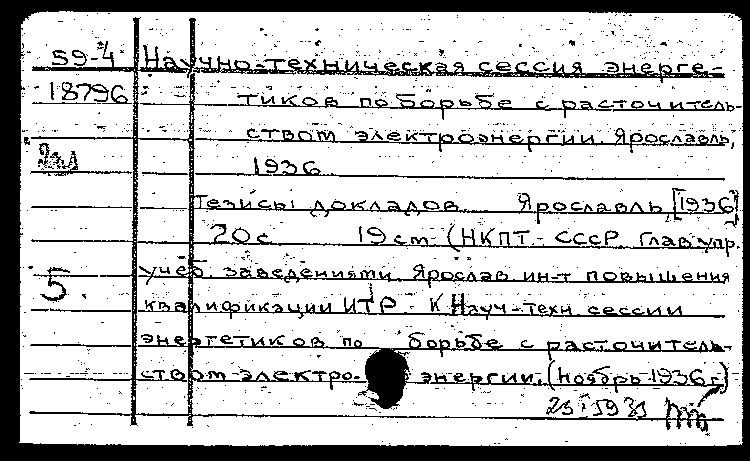 59-4 Научно-техническая сессия энерге-
18796 тиков по борьбе с расточитель-
ством электроэнергии. Ярославль,
1936
Тезисы докладов Ярославль, [1936]
20 с. 19 см (НКПТ - СССР. Глав. упр.
учеб. заведениями. Ярослав. ин-т повышения
5. квалификации ИТР. К Науч-техн. сессии
энергетиков по борьбе с расточитель-
ством электро- энергии. (ноябрь 1936 г.)